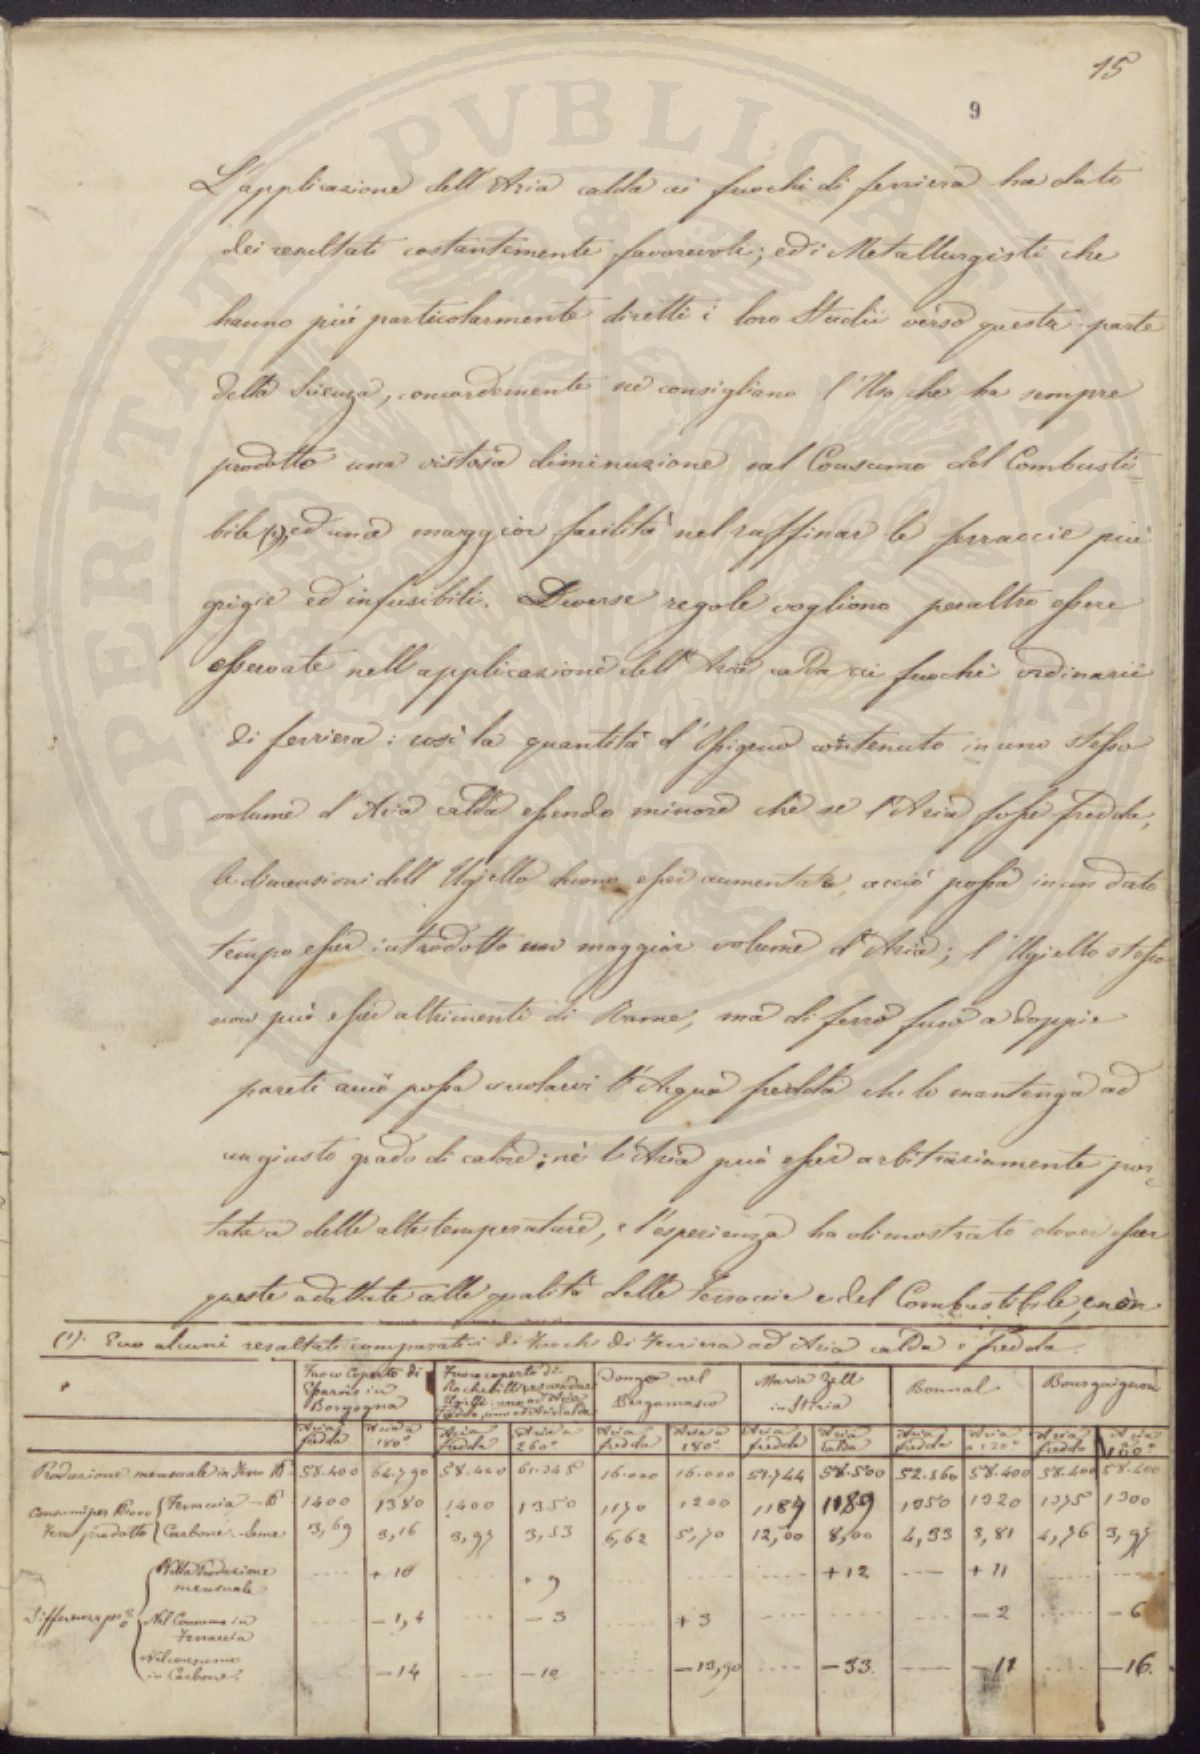 15
9
L'applicazione dell'Aria calda ai fuochi di ferriera ha dato
dei resultati costantemente favorevoli; ed i Metallurgisti che
hanno più particolarmente diretti i loro Studii verso questa parte
della Scienza, concordemente ne consigliano l'Uso che ha sempre
prodotto una vistosa diminuzione nel Consumo del Combusti=
bile (1), ed una maggior facilità nel raffinar le ferraccie più
grigie ed infusibili. Diverse regole vogliono peraltro essere
osservate nell'applicazione dell'Aria calda ai fuochi ordinarii
di ferriera: così la quantità d'Ossigeno contenuto in uno stesso
volume d'Aria calda essendo minore che se l'Aria fosse fredda,
le dimensioni dell'Ugiello devono esser aumentate, acciò possa in un dato
tempo esser introdotto un maggior volume d'Aria; l'Ugiello stesso
non può esser altrimenti di Rame, ma di ferro fuso a doppie
pareti acciò possa circolarvi l'Acqua fredda che lo mantenga ad
un giusto grado di calore; nè l'Aria può esser arbitrariamente por=
tata a delle alte temperature, e l'esperienza ha dimostrato dover esser
queste adattate alle qualità delle Ferraccie e del Combustibile, e non
(1). Ecco alcuni resultati comparativi di Fuochi di Ferriera ad Aria calda e fredda.
Fuoco Coperto di in Borgogna | Fuoco coperto di | Dongo nel Bergamasco | Maria Zell in Stiria | Bonnal | Bourguignon
Aria fredda | Aria a 180° | Aria fredda | Aria a 260° | Aria fredda | Aria a 180° | Aria fredda | Aria calda | Aria fredda | Aria a 120° | Aria fredda | Aria a
Produzione mensuale in Ferro | 58.400 | 64.790 | 58.400 | 61.345 | 16.000 | 16.000 | 51.744 | 58.500 | 52.560 | 58.400 | 58.400 | 58.400
Consumi per 1000 Ferro prodotto
Ferraccia | 1400 | 1380 | 1400 | 1350 | 1170 | 1200 | 1189 | 1189 | 1350 | 1320 | 1375 | 1300
Carbone Some | 3,69 | 3,16 | 3,97 | 3,53 | 6,62 | 5,70 | 12,00 | 8,00 | 4,33 | 3,81 | 4,76 | 3,97
Differenze per %
Nella Produzione mensuale | + 10 | + 9 | +12 | +11
Nel Consumo in Ferraccia | -1,4 | -3 | +3 | -2 | -6
Nel consumo in Carbone | -14 | -10 | -13,90 | -33. | -11 | -16.
SPERITATI PUBLICAE